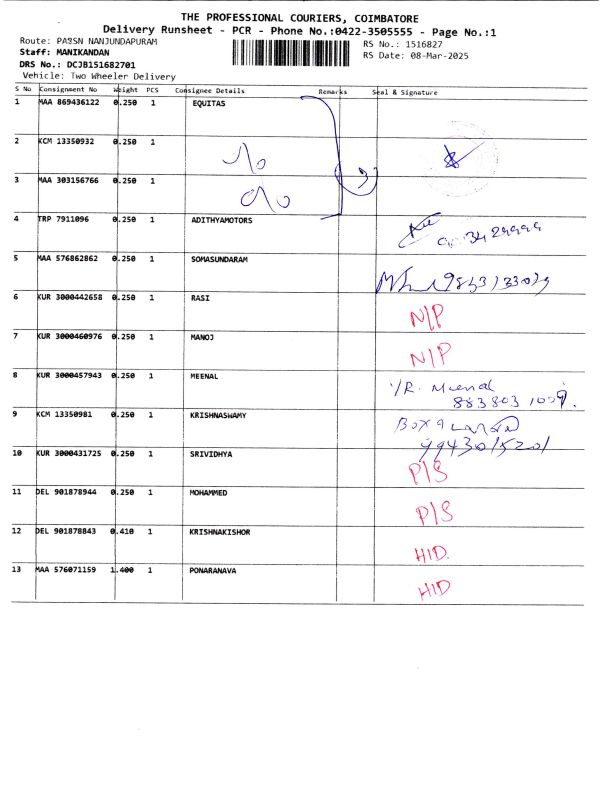 THE PROFESSIONAL COURIERS, COIMBATORE
Delivery Runsheet - PCR - Phone No.:0422-3505555 - Page No.:1
Route: PASSN NANJUNDAPURAM
RS No.: 1516827
Staff: MANIKANDAN
RS Date: 08-Mar-2025
DRS No.: DCJB151682701
Vehicle: Two Wheeler Delivery
S No Consignment No Weight PCS Consignee Details Remarks Seal & Signature
1 MAA 869436122 0.250 1 EQUITAS
2 KCM 13350932 0.250 1
3 MAA 303156766 0.250 1
3
4 TRP 7911096 0.250 1 ADITHYAMOTORS
5 MAA 576862862 0.250 1 SOMASUNDARAM
6 KUR 3000442658 0.250 1 RASI N/P
7 KUR 3000460976 0.250 1 MANOJ N/P
8 KUR 3000457943 0.250 1 MEENAL Meenal
9 KCM 13350981 0.250 1 KRISHNASWAMY
9943015201
10 KUR 3000431725 0.250 1 SRIVIDHYA P/S
11 DEL 901878944 0.250 1 MOHAMMED P/S
12 DEL 901878843 0.410 1 KRISHNAKISHOR HID.
13 MAA 576071159 1.400 1 PONARANAVA HID